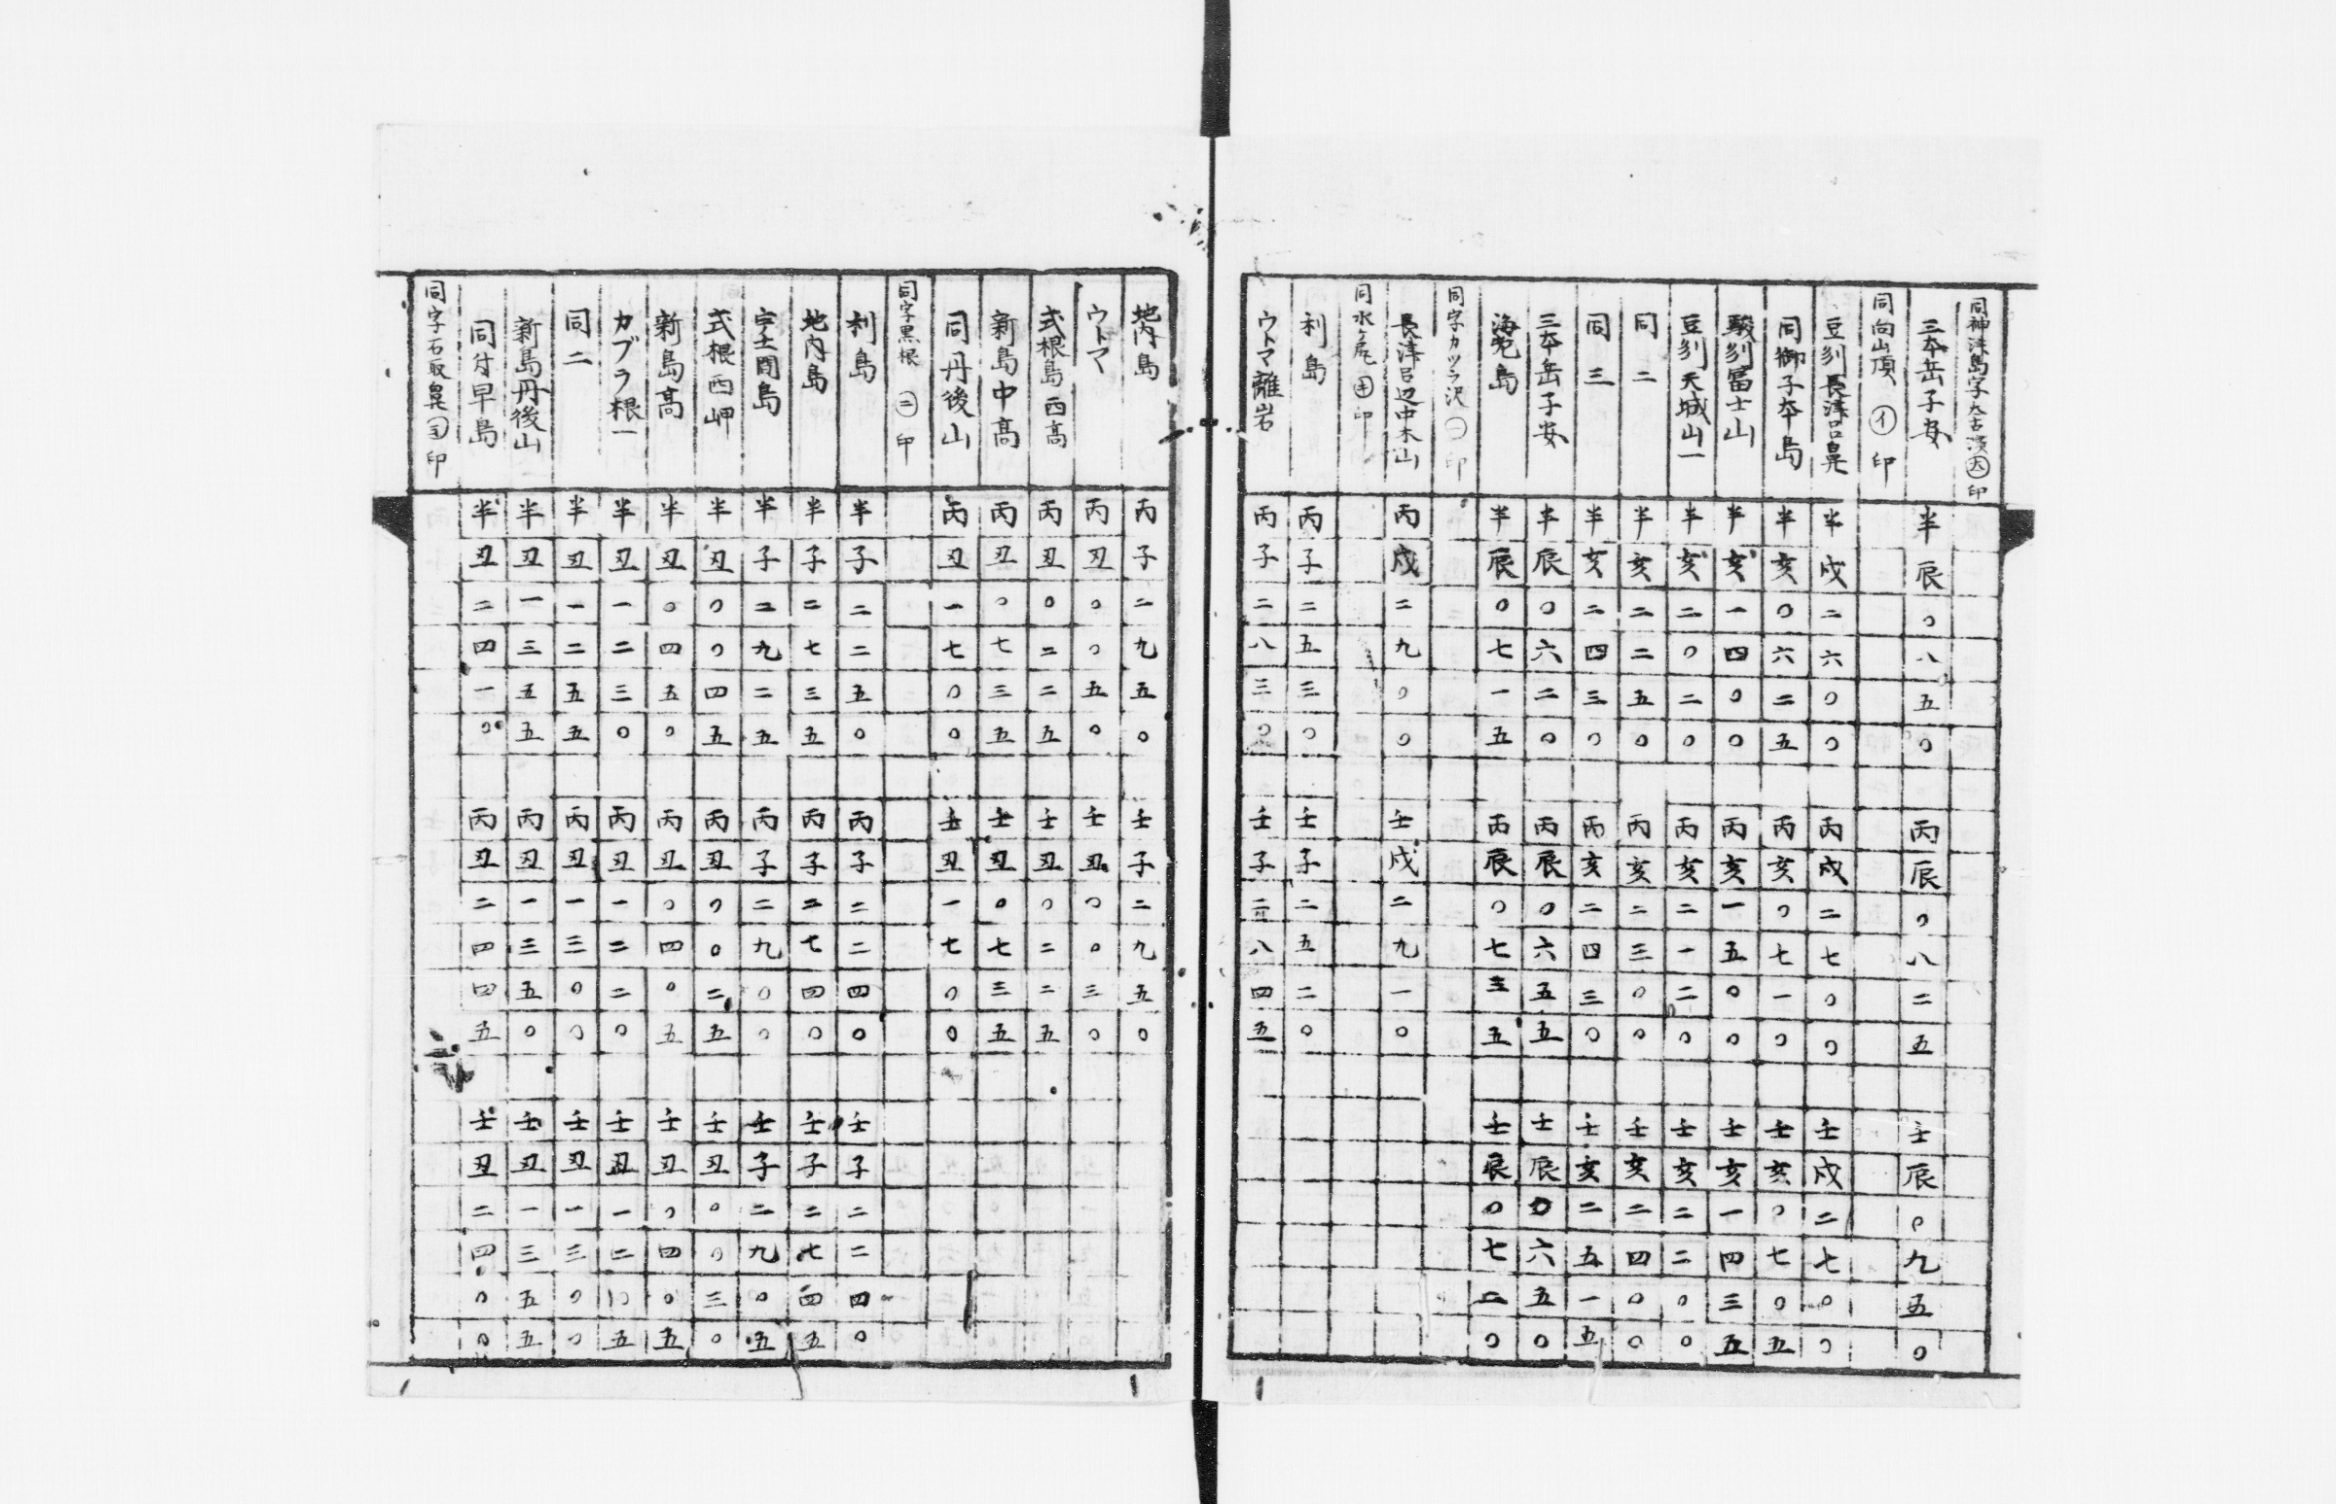 同神津島字大古濱㊅印
三本岳子安 半辰〇八五〇 丙辰〇八二五 壬辰〇九五〇
同向山頂 ㋑印
豆刕長津呂鼻 半戌二六〇〇 丙戌二七〇〇 壬戌二七〇〇
同御子本島 半亥〇六二五 丙亥〇七一〇 壬亥〇七〇五
駿刕冨士山 半亥一四〇〇 丙亥一五〇〇 壬亥一四三五
豆刕天城山一 半亥二〇二〇 丙亥二一二〇 壬亥二二〇〇
同二 半亥二二五〇 丙亥二三〇〇 壬亥二四〇〇
同三 半亥二四三〇 丙亥二四三〇 壬亥二五一五
三本岳子安 半辰〇六二〇 丙辰〇六五五 壬辰〇六五〇
海老島 半辰〇七一五 丙辰〇七三五 壬辰〇七二〇
同字カツラ沢㊀印
長津呂辺中木山 丙戌二九〇〇 壬戌二九一〇
同水尻 印
利島 丙子二五三〇 壬子二五二〇
ウトマ離岩 丙子二八三〇 壬子二八四五
地内島 丙子二九五〇 壬子二九五〇
ウトマ 丙丑〇〇五〇 壬丑〇〇三〇
式根島西高 丙丑〇二二五 壬丑〇二二五
新島中高 丙丑〇七三五 壬丑〇七三五
同丹後山 丙丑一七〇〇 壬丑一七〇〇
同字黒根 ㊁印
利島 半子二二五〇 丙子二二四〇 壬子二二四〇
地内島 半子二七三五 丙子二七四〇 壬子二七四五
宇土間島 半子二九二五 丙子二九〇〇 壬子二九〇五
式根西岬 半丑〇〇四五 丙丑〇〇二五 壬丑〇〇三〇
新島高 半丑〇四五〇 丙丑〇四〇五 壬丑〇四〇五
カブラ根一 半丑一二三〇 丙丑一二二〇 壬丑一二〇五
同二 半丑一二五五 丙丑一三〇〇 壬丑一三〇〇
新島丹後山 半丑一三五五 丙丑一三五〇 壬丑一三五五
同分早島 半丑二四一〇 丙丑二四四五 壬丑二四〇〇
同字石取鼻 印